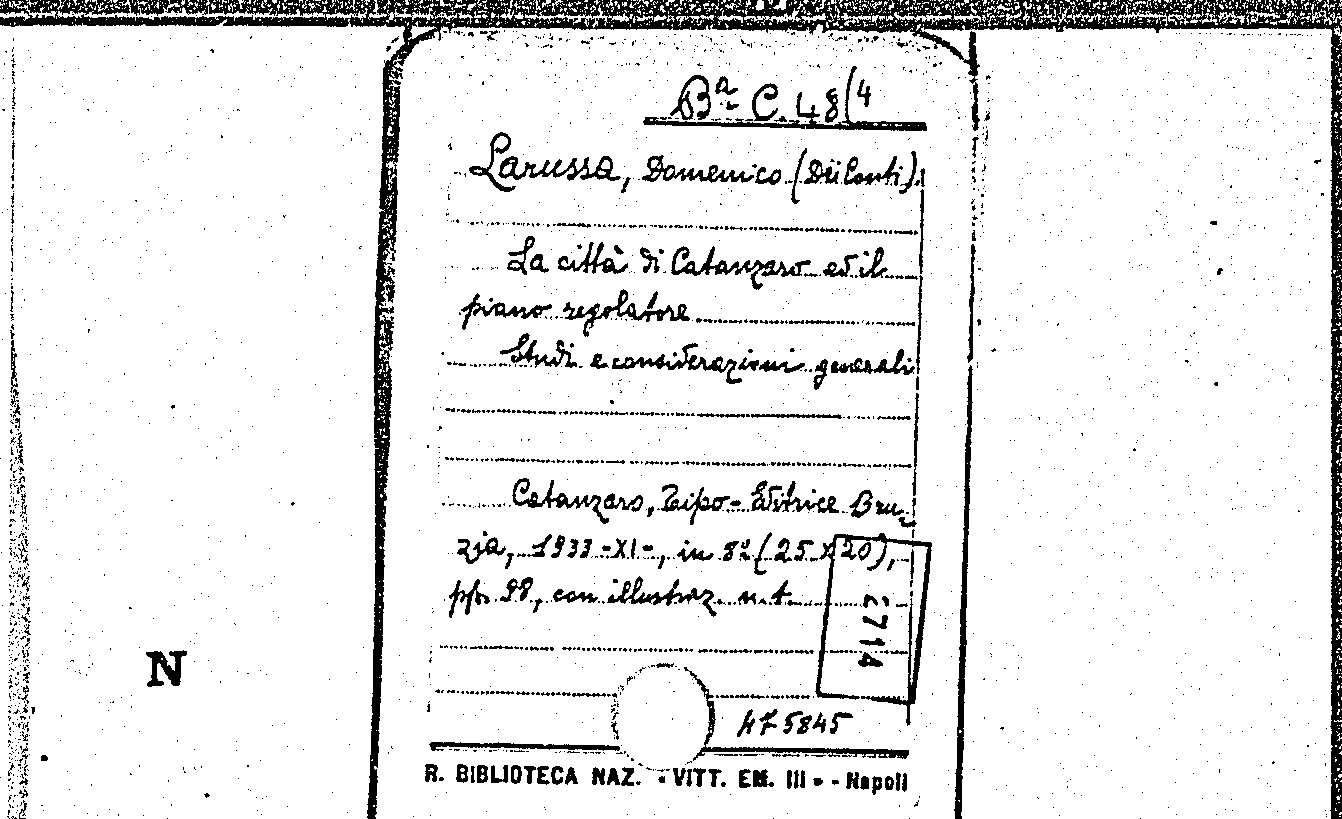 Bª C. 48(4
Larussa, Domenico (Dü Conti).
La città di Catanzaro ed il
piano regolatore
Studi e considerazioni generali
Catanzaro, Tipo-Editrice Bru-
zia, 1933-XI-, in 8º (25x20),
pp. 98, con illustraz. n.t.
2714
N
475845
R. BIBLIOTECA NAZ. "VITT. EM. III" - Napoli